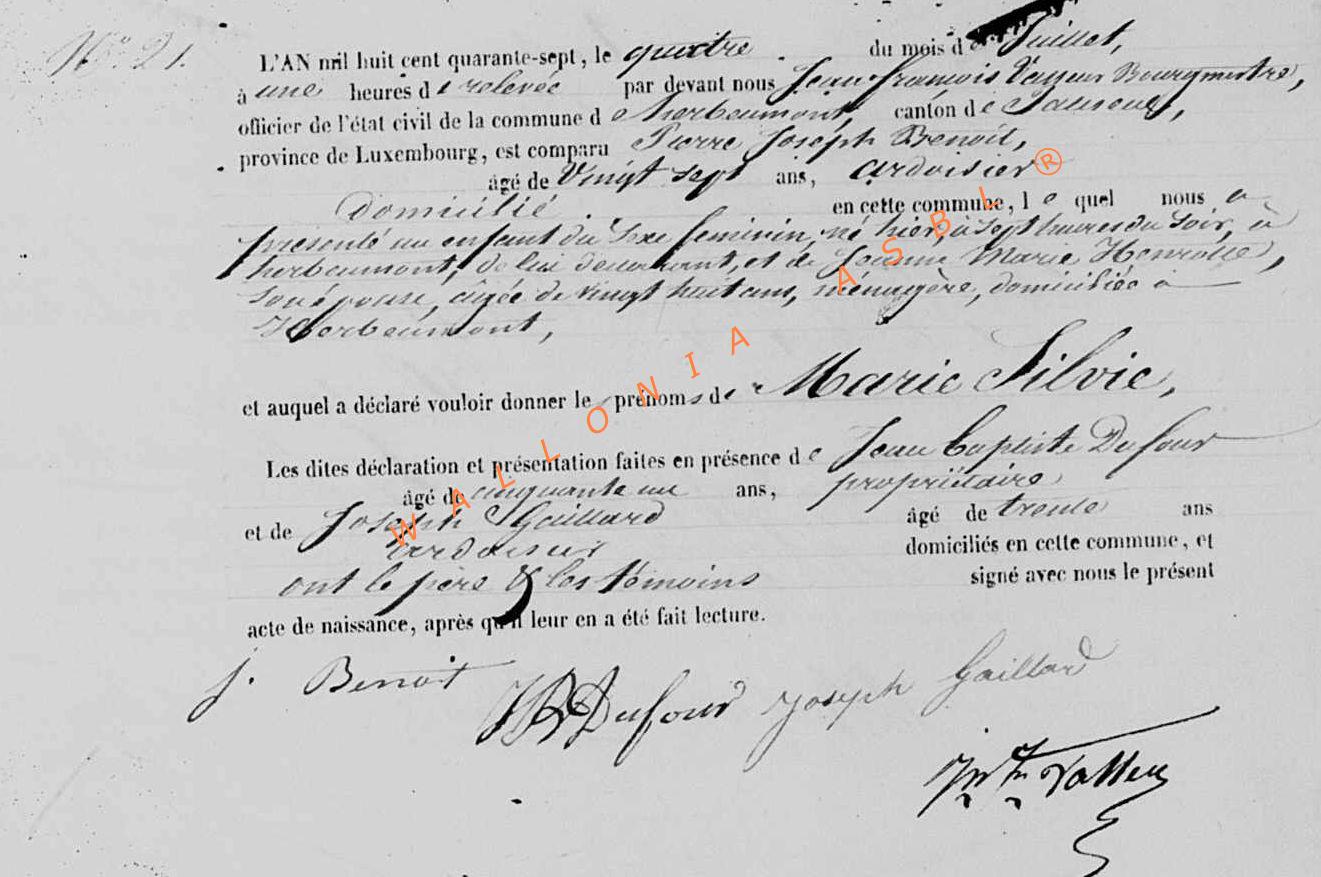 N° 21.
L'AN mil huit cent quarante-sept, le quatre du mois de Juillet,
à une heures de relevée par devant nous Jean françois Vasseur Bourgmestre,
officier de l'état civil de la commune d e herbeumont, canton de
province de Luxembourg, est comparu Pierre Joseph Benoit,
âgé de Vingt sept ans, ardoisier
domicilié en cette commune, l e quel nous a
présenté un enfant du sexe feminin, né hier, à sept heures du soir, à
herbeumont, de lui déclarant, et de Jeanne Marie Henrotte,
son épouse, agée de vingt huit ans, ménagère, domiciliée à
Herbeumont,
et auquel a déclaré vouloir donner le s prénoms de Marie Silvie,
Les dites déclaration et présentation faites en présence d e Jean Baptiste Dufour
âgé de cinquante un ans, propriétaire
et de Joseph Gaillard âgé de trente ans
ardoisier domiciliés en cette commune, et
ont le père & les témoins signé avec nous le présent
acte de naissance, après qu'il leur en a été fait lecture.
j. Benoit
JB Dufour Joseph Gaillard
Vasseur
WALLONIA ASBL ®